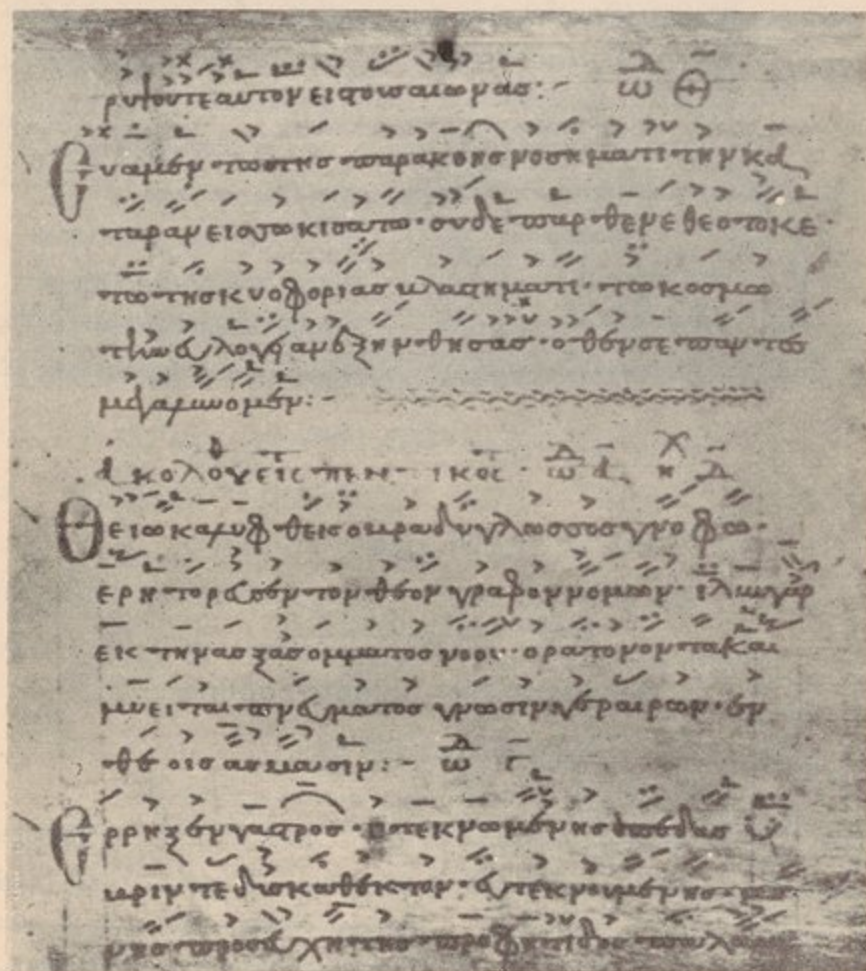 ρυψουτε αυτον εις τους αιωνας:~ ωδ Θ
Ευα μεν τω της παρακοης νοσηματι την κα
ταραν εισωκισατο· συ δε παρθενε θεοτοκε·
τω της κυοφοριας βλαστηματι· τω κοσμω
την ευλογιαν εξηνθησας· οθεν σε παντες
μεγαλυνομεν:~
ωδ α ηχ δ
Θειω καλυφθεις ο βραδυγλωσσος γνοφω·
ερρητορευσεν τον θεογραφον νομον· ιλυν γαρ
εκτιναξας ομματος νοου· ορα τον οντα και
μυειται πνευματος γνωσιν γεραιρων· εν
θεοις ασμασιν:~ ωδ γ
Ερρηξεν γαστρος ητεκνωμενης πεδας υ
βριν τε δυσκαθεκτον· ευτεκνουμενης· μο
νης προσευχη της προφητιδος